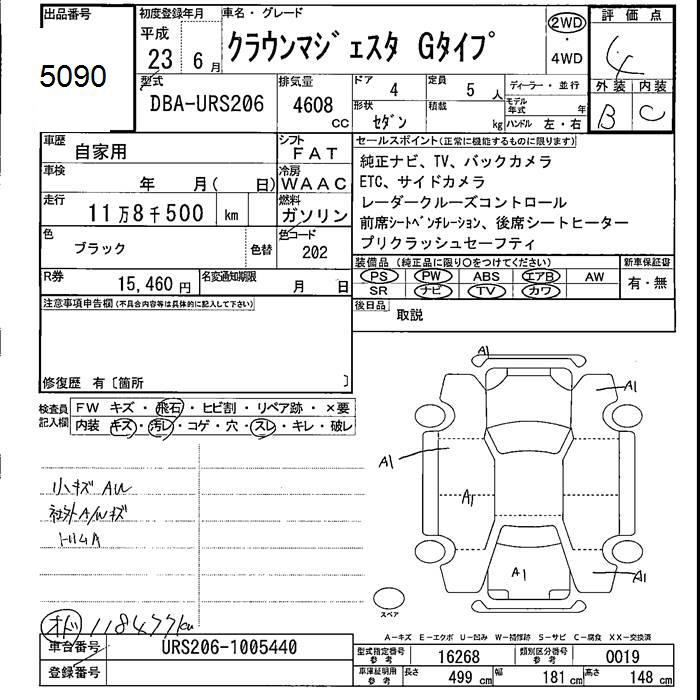 出品番号
5090
初度登録年月
平成
23 6月
車名・グレード
クラウンマジェスタ Gタイプ
2WD
・
4WD
評価点
4
外装 内装
B C
型式
DBA-URS206
排気量
4608
CC
ドア 4
定員 5 人
形状
セダン
積載
kg
ディーラー・並行
モデル年式 年
ハンドル 左・右
車歴
自家用
シフト
FAT
車検
年 月( 日)
冷房
WAAC
走行
11万8千500 km
燃料
ガソリン
色
ブラック
色替
色コード
202
R券
15,460 円
名変通知期限
月 日
セールスポイント(正常に機能するものに限ります)
純正ナビ、TV、バックカメラ
ETC、サイドカメラ
レーダークルーズコントロール
前席シートベンチレーション、後席シートヒーター
プリクラッシュセーフティ
装備品(純正品に限り○をつけてください)
PS PW ABS エアB AW
SR ナビ TV カワ
新車保証書
有・無
後日品
取説
注意事項申告欄(不具合内容等は具体的に記入して下さい)
修復歴 有〔箇所 〕
検査員
記入欄
FW キズ・飛石・ヒビ割・リペア跡・×要
内装 キズ・汚レ・コゲ・穴・スレ・キレ・破レ
小キズ AW
社外A/Wキズ
トリムA
オド 118477km
A1
A1
A1
A1
A1
A1
スペア
A-キズ E-エクボ U-凹み W-補修跡 S-サビ C-腐食 XX-交換済
車台番号
URS206-1005440
登録番号
型式指定番号
参考
16268
類別区分番号
参考
0019
車庫証明用
参考
長さ 499 cm
幅 181 cm
高さ 148 cm